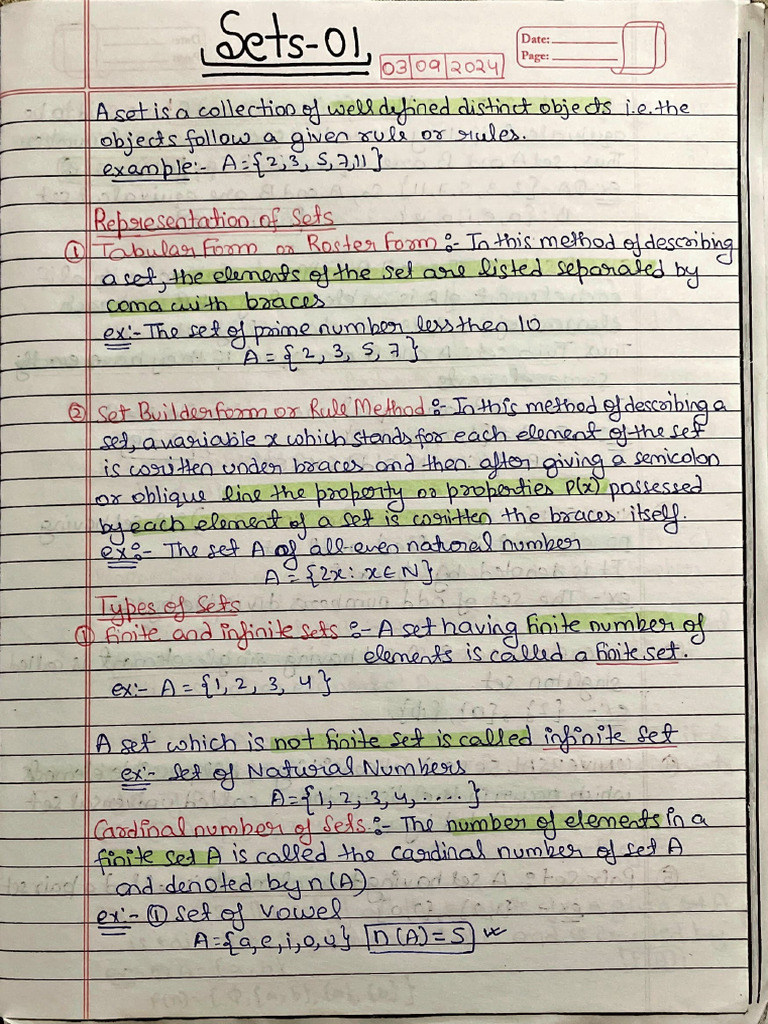 Sets-01
03|09|2024
Date:
Page:
A set is a collection of well defined distinct objects i.e. the
objects follow a given rule or rules.
example:- A={2,3,5,7,11}
Representation of Sets
① Tabular Form or Roster Form :- In this method of describing
a set, the elements of the set are listed separated by
coma with braces
ex:- The set of prime number less then 10
A = {2, 3, 5, 7}
② Set Builder form or Rule Method :- In this method of describing a
set, a variable x which stands for each element of the set
is written under braces and then after giving a semicolon
or oblique line the property or properties P(x) possessed
by each element of a set is written the braces itself.
ex:- The set A of all even natural number
A = {2x: x∈N}
Types of Sets
① finite and infinite sets :- A set having finite number of
elements is called a finite set.
ex:- A = {1, 2, 3, 4}
A set which is not finite set is called infinite set
ex:- set of Natural Numbers
A={1, 2, 3, 4, .....}
Cardinal number of sets :- The number of elements in a
finite set A is called the cardinal number of set A
and denoted by n(A)
ex:- ① set of vowel
A={a,e,i,o,u} n(A)=5